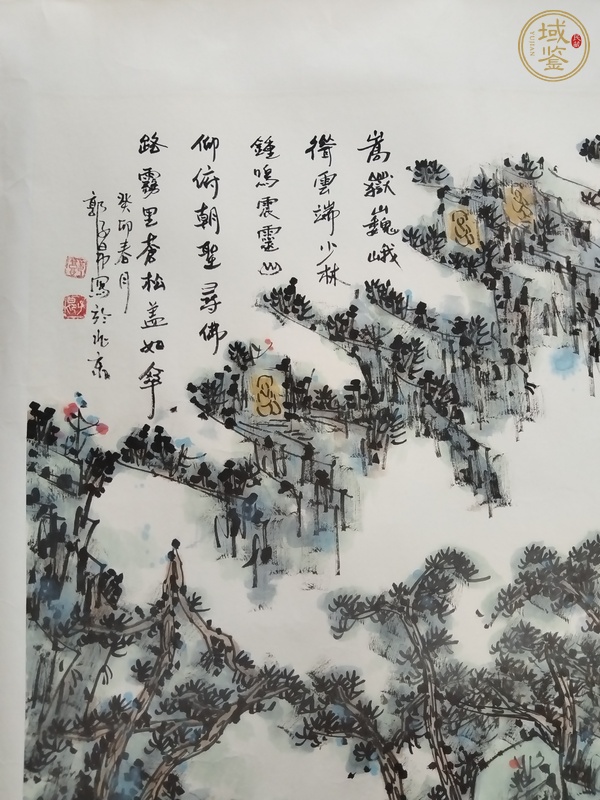 嵩嶽山巍峨
聳雲端少林
鍾鳴震靈山
仰俯朝聖尋佛
路霧里蒼松蓋如傘
癸卯春月
郭寫於北京
域鉴
YUJIAN